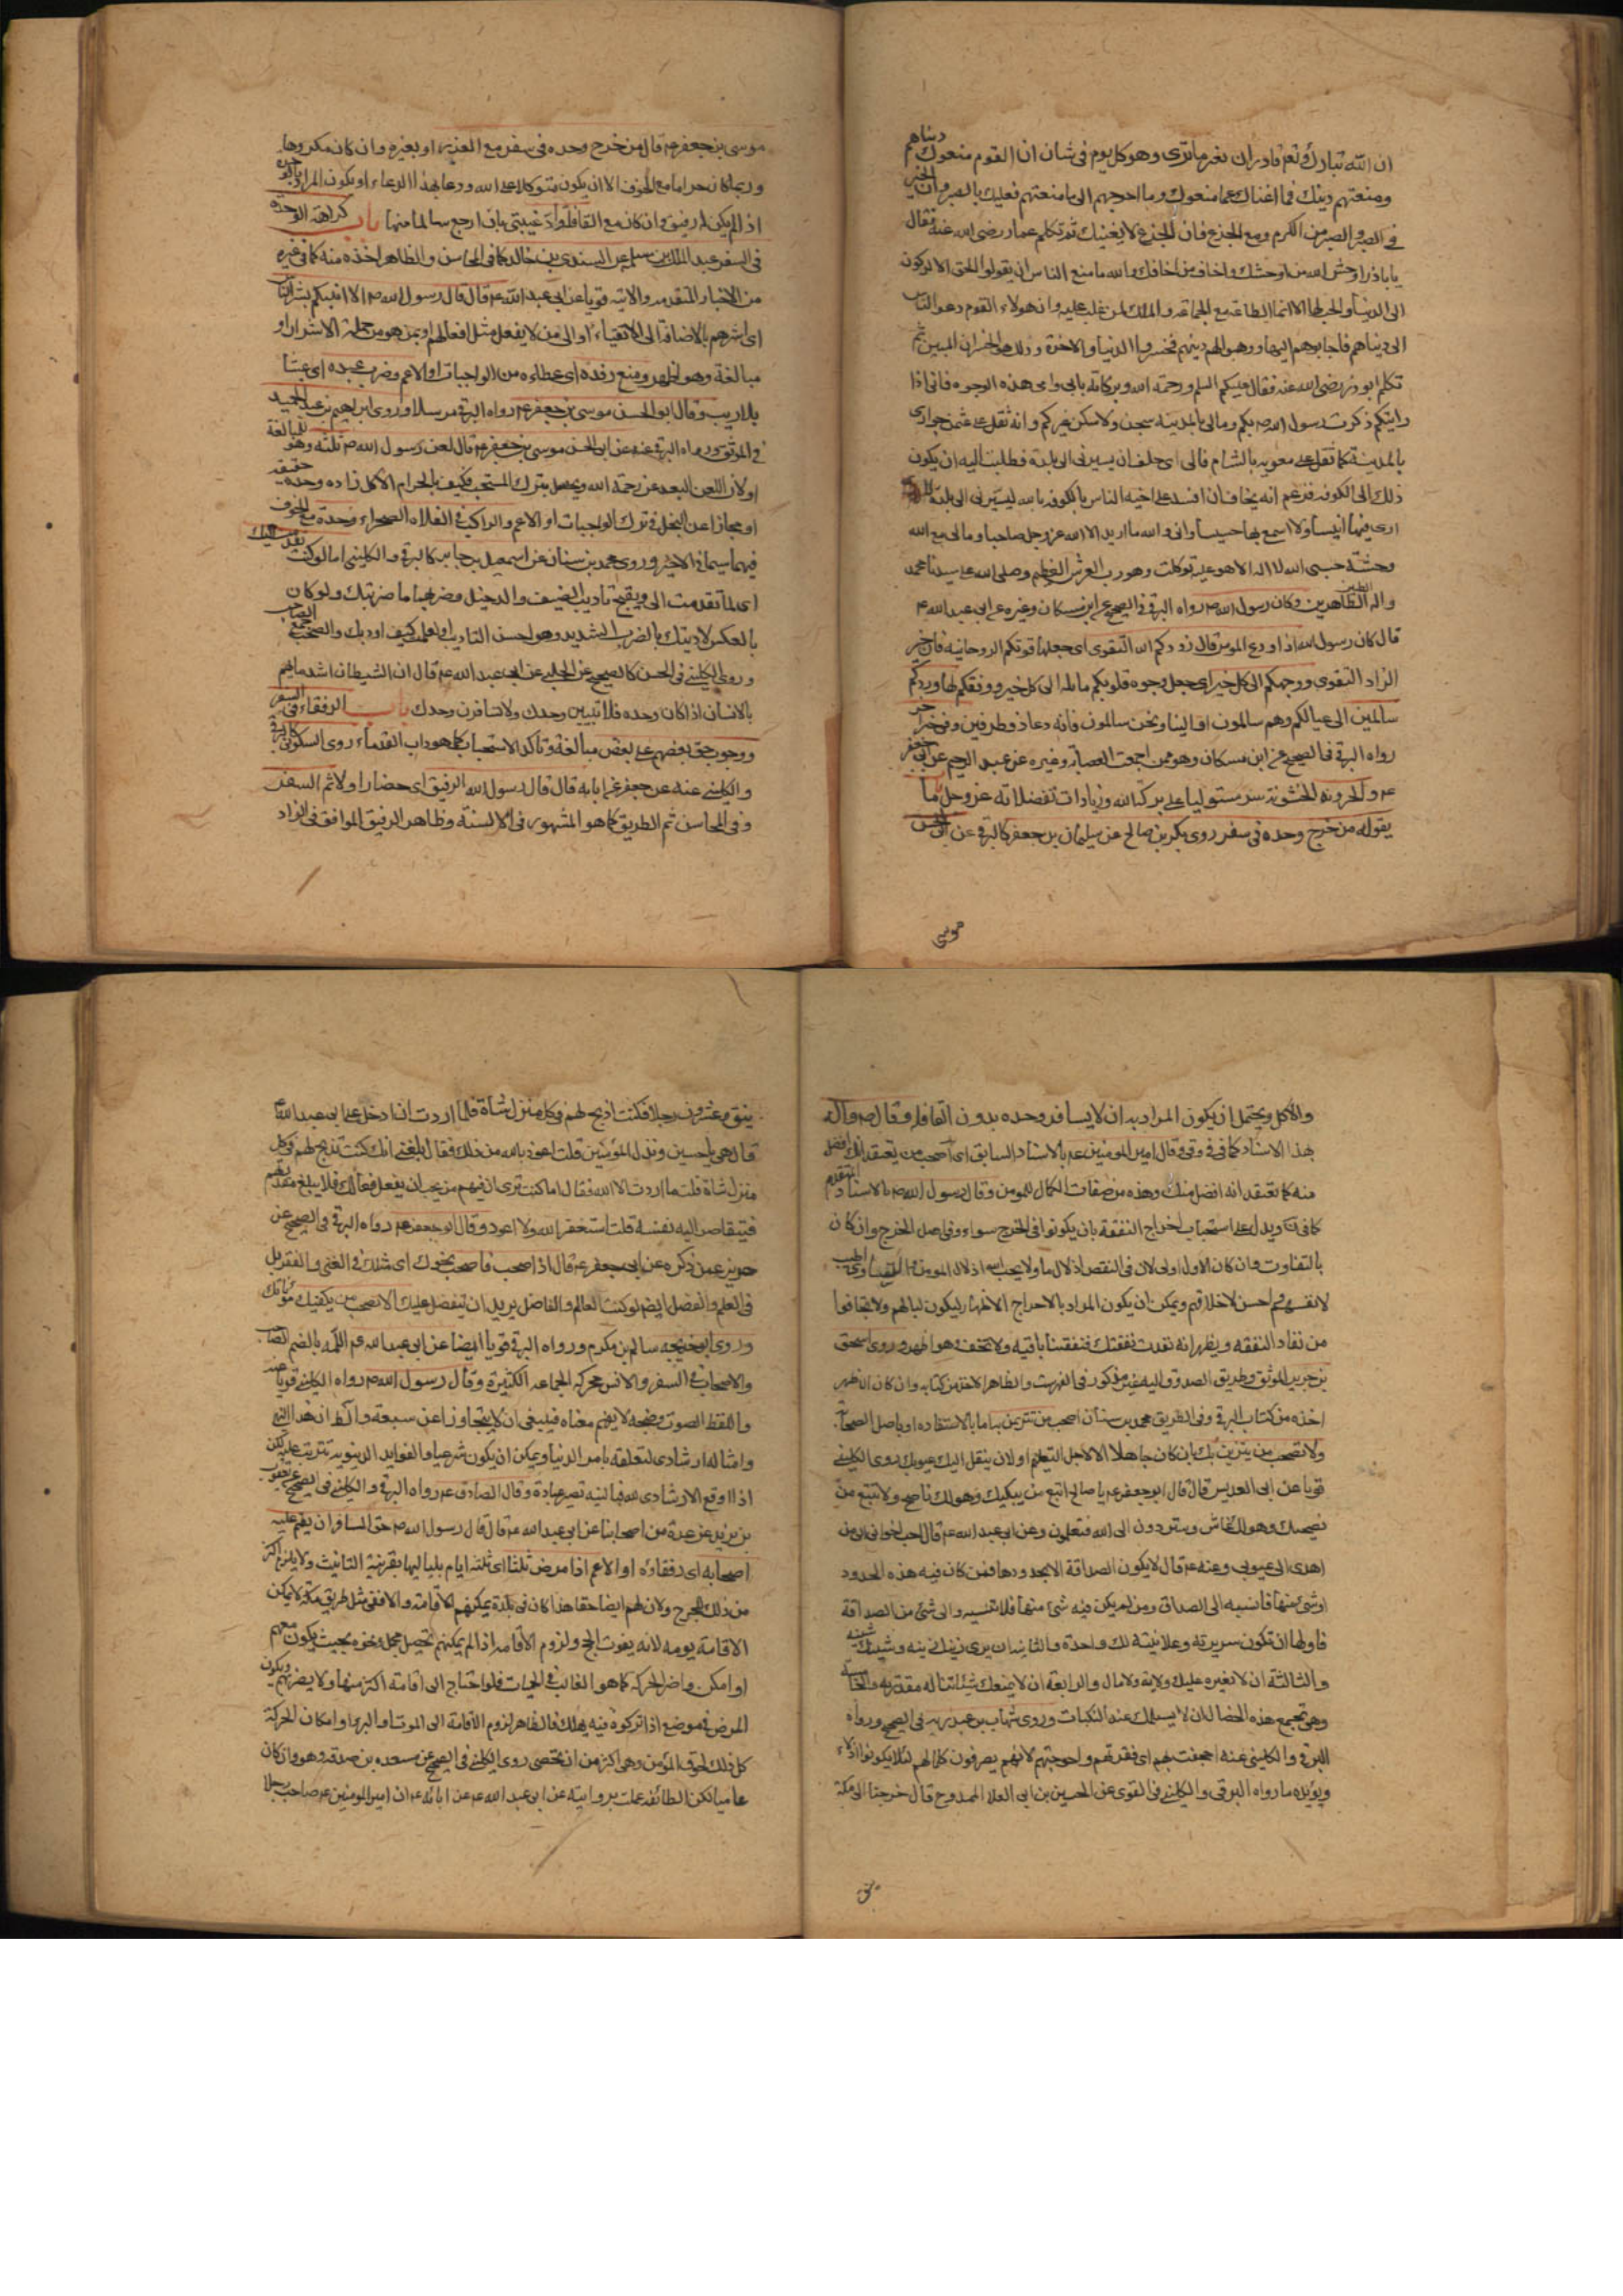 ان الله تبارك وتع قادر ان يغير ما ترى وهو كل يوم فى شان ان القوم منعوك دنياهم
ومنعتهم دينك فما اغناك عما منعوك وما احوجهم الى ما منعتهم فعليك بالصبر وان الخير
فى الصبر والصبر من الكرم ودع الجزع فان الجزع لا يغنيك ثم تكلم عمار رضى الله عنه فقال
يا باذر اوحش الله من اوحشك واخاف من اخافك والله ما منع الناس ان يقولوا الحق الا الركون
الى الدنيا والحب لها الا انما الطاعة مع الجماعة والملك لمن غلب عليه وان هولاء القوم دعوا الناس
الى دنياهم فاجابوهم اليها ووهبوا لهم دينهم فخسروا الدنيا والاخرة وذلك هو الخسران المبين ثم
تكلم ابو ذر رضى الله عنه فقال عليكم السلم ورحمة الله وبركاته بابى وامى هذه الوجوه فانى اذا
رايتكم ذكرت رسول الله ص بكم ومالى بالمدينة شجن ولا سكن غيركم وانه ثقل على عثمن جوارى
بالمدينة كما ثقل على معويه بالشام فالى اى حلف ان يسيرنى الى بلدة فطلبت اليه ان يكون
ذلك الى الكوفه فزعم انه يخاف ان افسد على اخيه الناس بالكوفه بالله ليسيرنى الى بلدة لا
ارى فيها انيسا ولا اسمع بها حسيسا وانى والله ما اريد الا الله عز وجل صاحبا ومالى مع الله
وحشة حسبى الله لا اله الا هو عليه توكلت وهو رب العرش العظيم وصلى الله على سيدنا محمد
واله الطيبين الطاهرين وكان رسول الله ص رواه البرقى فى الصحيح عن ابن مسكان وغيره عن ابى عبد الله ع
قال كان رسول الله اذا ودع المومن قال زودكم الله التقوى اى جعلها قوتكم الروحانيه فان خير
الزاد التقوى ووجهكم الى كل خير اى جعل وجوه قلوبكم مائلة الى كل خير ووفقكم لها وردكم
سالمين الى عيالكم وهم سالمون او الينا ونحن سالمون فانه دعاء ذو طرفين وفى خبر اخر
رواه البرقى فى الصحيح عن ابن مسكان وهو ممن اجمعت العصابة وغيره عن عبد الرحيم عن ابى جعفر
ع والحزونة الخشونة مستوليا على بركة الله وزيادات تفضلاته عز وجل باب ما
يقوله من خرج وحده فى سفر روى بكر بن صالح عن سليمان بن جعفر كالبرقى عن ابى الحسن
موسى
موسى بن جعفر ع قال من خرج وحده فى سفر مع العذر او بغيره وان كان مكروها
وربما كان حراما مع الخوف الا ان يكون متوكلا على الله ودعا بهذا الدعاء او يكون المراد به
اذا لم يكن له رفيق وان كان مع القافلة واد غيبتى بان ارجع سالما غانما باب كراهة الوحدة
فى السفر عبد الملك بن سلمه عن السندى بن خالد كما فى المحاسن والظاهر اخذه منه كما فى غيره
من الاخبار المتقدمه والاتيه قويا عن ابى عبد الله ع قال قال رسول الله ص الا انبئكم بشر الناس
اى اشرهم بالاضافة الى الاتقياء او الى من لا يفعل مثل افعالهم او ممن هو من جملة الاشرار او
مبالغة وهو اظهر ومنع رفده اى عطاءه من الواجبات او الاعم وضرب عبده اى عبثا
بلا ريب وقال ابو الحسن موسى بن جعفر ع رواه البرقى مرسلا وروى ابراهيم بن عبد الحميد
فى الموثق ورواه البرقى عنه عن ابى الحسن موسى بن جعفر ع قال لعن رسول الله ص ثلثة وهو للمبالغة
او لان اللعن البعد عن رحمة الله ويحصل بترك المستحب فكيف بالحرام الآكل زاده وحده حقيقة
او مجازا عن البخل فى ترك الواجبات او الاعم والراكب فى الفلاة الصحراء وحده مع الخوف
فيهما سيما فى الاخير وروى محمد بن سنان عن اسمعيل بن جابر كالبرقى والكلينى اما لو كنت تقدمت اليك
اى لما تقدمت الى ويقبح تاديب الضيف والدخيل وضربهما ما ضربتك ولو كان
بالعكس لادبتك بالضرب الشديد وهو احسن التاديب او اعلمك كيف اودبك والصحب جمع الصاحب
وروى الكلينى فى الحسن كالصحيح عن الحلبى عن ابى عبد الله ع قال ان الشيطان اشد ما يهم
بالانسان اذا كان وحده فلا تبيتن وحدك ولا تسافرن وحدك باب الرفقاء فى السفر
ووجوب حق بعضهم على بعض مبالغة وتاكد الاستحباب كما هو داب القدماء روى السكونى كالبرقى
والكلينى عنه عن جعفر عن ابائه قال قال رسول الله الرفيق اى حضارا ولا ثم السفر
وفى المحاسن ثم الطريق كما هو المشهور فى الالسنة وظاهر الرفيق الموافق فى الزاد
والاكل ويحتمل ان يكون المراد به ان لا يسافر وحده بدون القافلة وقال ص واله
بهذا الاسناد كما فى فى وقى قال امير المومنين ع بالاسناد السابق اى اصحب من يعتقد انك افضل
منه كما تعتقد انه افضل منك وهذه من صفات الكمال للمومن وقال رسول الله ص بالاسناد المتقدم
كما فى ويدل على استحباب اخراج النفقة بان يكونوا فى الخرج سواء وفى اصل الخرج وان كان
بالتفاوت وان كان الاول اولى لان فى النقص اذلالا ما ولا يحب الله اذلال المومن اطيب
لانفسهم احسن لاخلاقهم ويمكن ان يكون المراد بالاخراج الاظهار ليكون لبالهم ولا يخافوا
من نفاد النفقه ويظهر انه نفدت نفقتك فنفقتنا باقيه ولا تخف هو اظهر وروى اسحق
بن جرير الموثق وطريق الصدوق اليه غير مذكور فى الفهرست والظاهر الاخذ من كتابه وان كان الاظهر
اخذه من كتاب البرقى وفى الطريق محمد بن سنان اصحب من تتزين به اما بالاستفاده او باصل الصحبة
ولا تصحب من يتزين بك بان كان جاهلا الا لاجل التعليم او لان ينقل اليك عيوبك روى الكلينى
قويا عن ابى العديس قال قال ابو جعفر ع يا صالح اتبع من يبكيك وهو لك ناصح ولا تتبع من
يضحك وهو لك غاش وستردون الى الله فتعلمون وعن ابى عبد الله ع قال احب اخوانى الى من
اهدى الى عيوبى وعنه ع قال لا يكون الصداقة الا بحدودها فمن كان فيه هذه الحدود
او شئ منها فانسبه الى الصداقة ومن لم يكن فيه شئ منها فلا تنسبه الى شئ من الصداقة
فاولها ان تكون سريرته وعلانيته لك واحدة والثانية ان يرى زينك زينه وشينك شينه
والثالثة ان لا تغيره عليك ولاية ولا مال والرابعة ان لا يمنعك شيئا تناله مقدرته والخامسة
وهى تجمع هذه الخصال ان لا يسلمك عند النكبات وروى شهاب بن عبد ربه فى الصحيح ورواه
البرقى والكلينى عنه اجحفت بهم اى فقرتهم واحوجتهم لانهم يصرفون كمالهم لئلا يكونوا اذلاء
ويؤيده ما رواه البرقى والكلينى فى القوى عن الحسين بن ابى العلا الممدوح قال خرجنا الى مكة
نيف وعشرون رجلا فكنت اذبح لهم فى كل منزل شاة فلما اردت ان ادخل على ابى عبد الله ع
قال هى يا حسين وتذل المؤمنين قلت اعوذ بالله من ذلك فقال بلغنى انك كنت تذبح لهم فى كل
منزل شاة قلت ما اردت الا الله فقال اما كنت ترى ان فيهم من يحب ان يفعل فعالك فلا يبلغ مقدرتهم
فيتقاصر اليه نفسه قلت استغفر الله ولا اعود وقال ابو جعفر ع رواه البرقى فى الصحيح عن
حريز عمن ذكره عن ابى جعفر ع قال اذا صحبت فاصحب نحوك اى مثلك فى الغنى والفقر بل
فى العلم والفضل ايضا لو كنت العالم والفاضل يريد ان يتفضل عليك لا تصحب من يكفيك مؤنتك
وروى ابى خديجه سالم بن مكرم ورواه البرقى قويا ايضا عن ابى عبد الله ع اللمه بالضم الصاحب
والاصحاب فى السفر والانس محركة الجماعه الكثيرة وقال رسول الله ص رواه الكلينى قويا عنه
واللغط الصوت وضجه لا يفهم معناه فينبغى ان لا يتجاوز عن سبعة والظ ان هذا النهى
وامثاله ارشادى لتعلقه بامر الدنيا ويمكن ان يكون شرعيا والفوايد الدنيويه تترتب عليه لكن
اذا اوقع الارشادى لله فبالنيه تصير عبادة وقال الصادق ع رواه البرقى والكلينى فى الصحيح عن يعقوب
بن يزيد عن عدة من اصحابنا عن ابى عبد الله ع قال قال رسول الله ص حق المسافر ان يقيم عليه
اصحابه اى رفقاؤه او الاعم اذا مرض ثلثا اى ثلثة ايام بلياليها بقرينة التانيث ولا يلزم اكثر
من ذلك للحرج ولان لهم ايضا حقا هذا كان فى بلدة يمكنهم الاقامة والا ففى مثل طريق مكة لا يمكن
الاقامة يومه لانه يفوت الحج ولزوم الاقامه اذا لم يمكنهم تحصيل محمل ونحوه بحيث يكون معهم
او امكن واضر الحركه كما هو الغالب فى الحميات فلو احتاج الى اقامة اكثر منها ولا يضرهم ويكون
المرض فى موضع اذا تركوه فيه يهلك فالظاهر لزوم الاقامة الى الموت او البرء او امكان الحركة
كل ذلك لحق المؤمن وهى اكثر من ان تحصى روى الكلينى فى الصحيح عن مسعده بن صدقه وهو وان كان
عاميا لكن الطائفه عملت برواياته عن ابى عبد الله ع عن ابائه ع ان امير المومنين ع صاحب رجلا